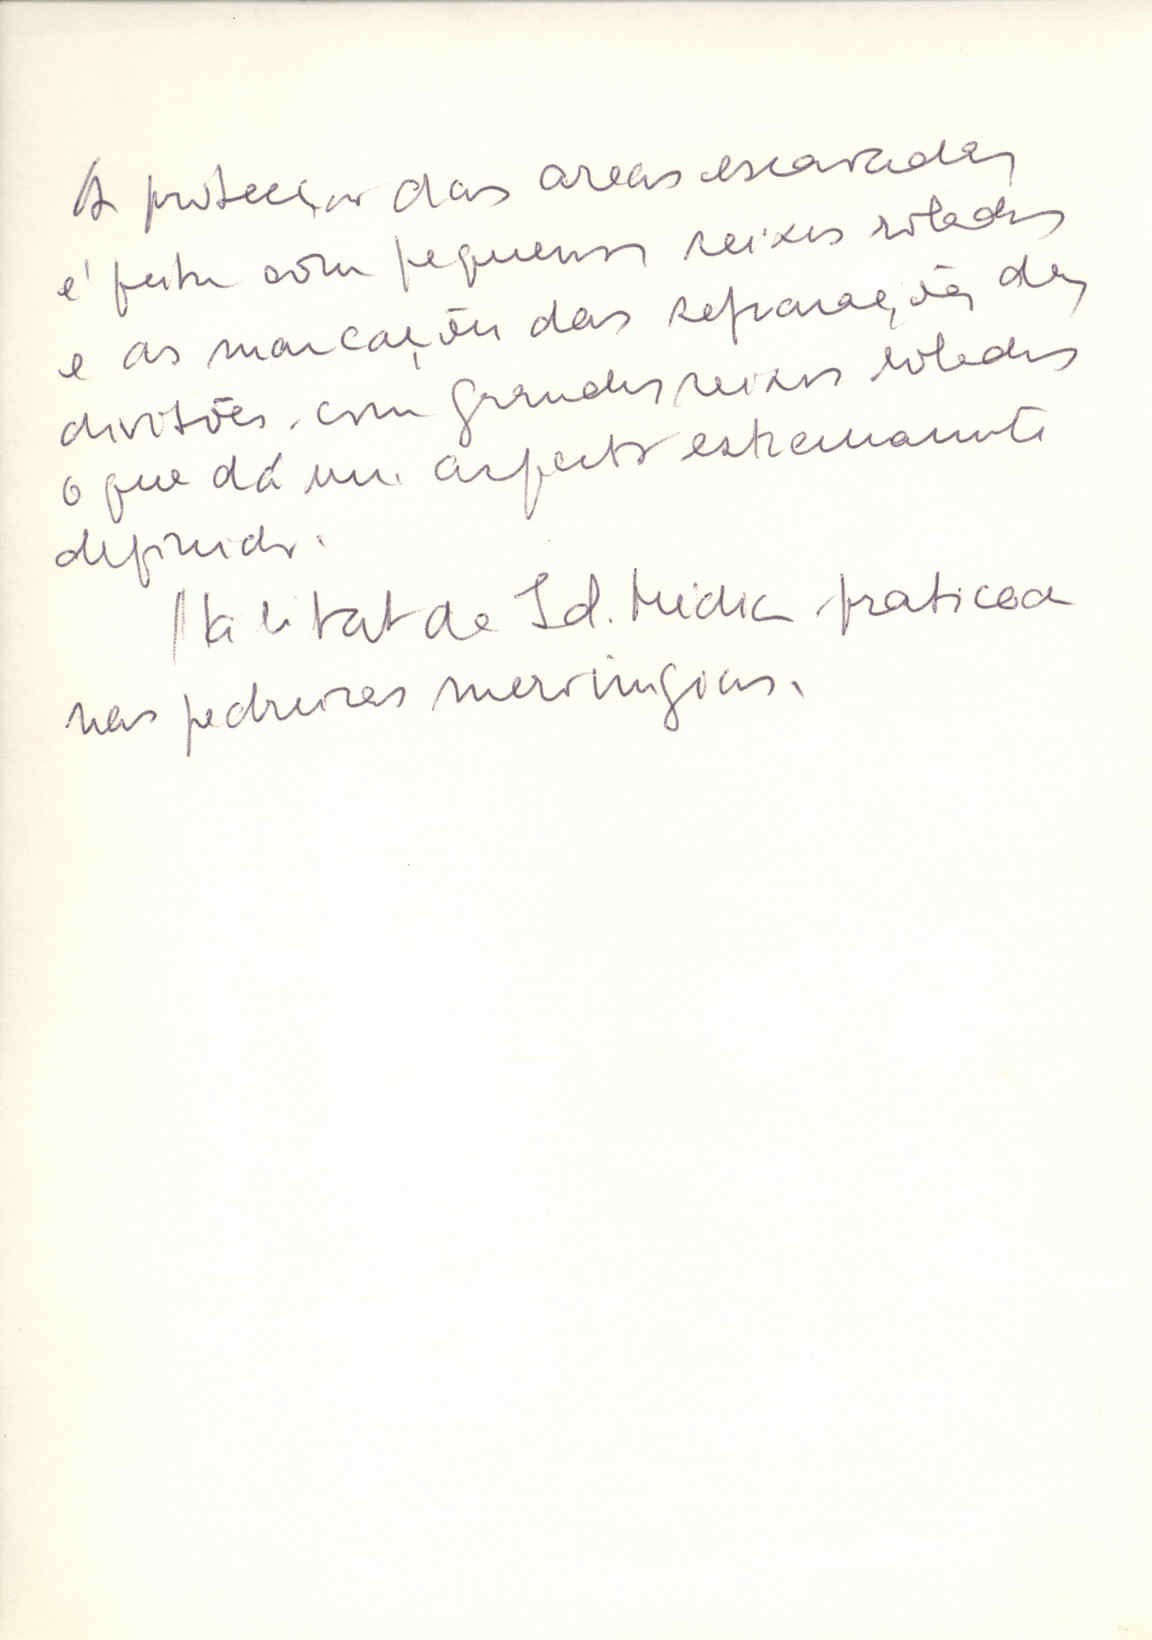 A protecção das areas escavadas
é feita com pequenos seixos rolados
e as marcações das separações das
divisões com grandes seixos rolados
o que dá um aspecto extremamente
definido.
Habitat de Id. Média praticada
nas pedreiras merovingias.